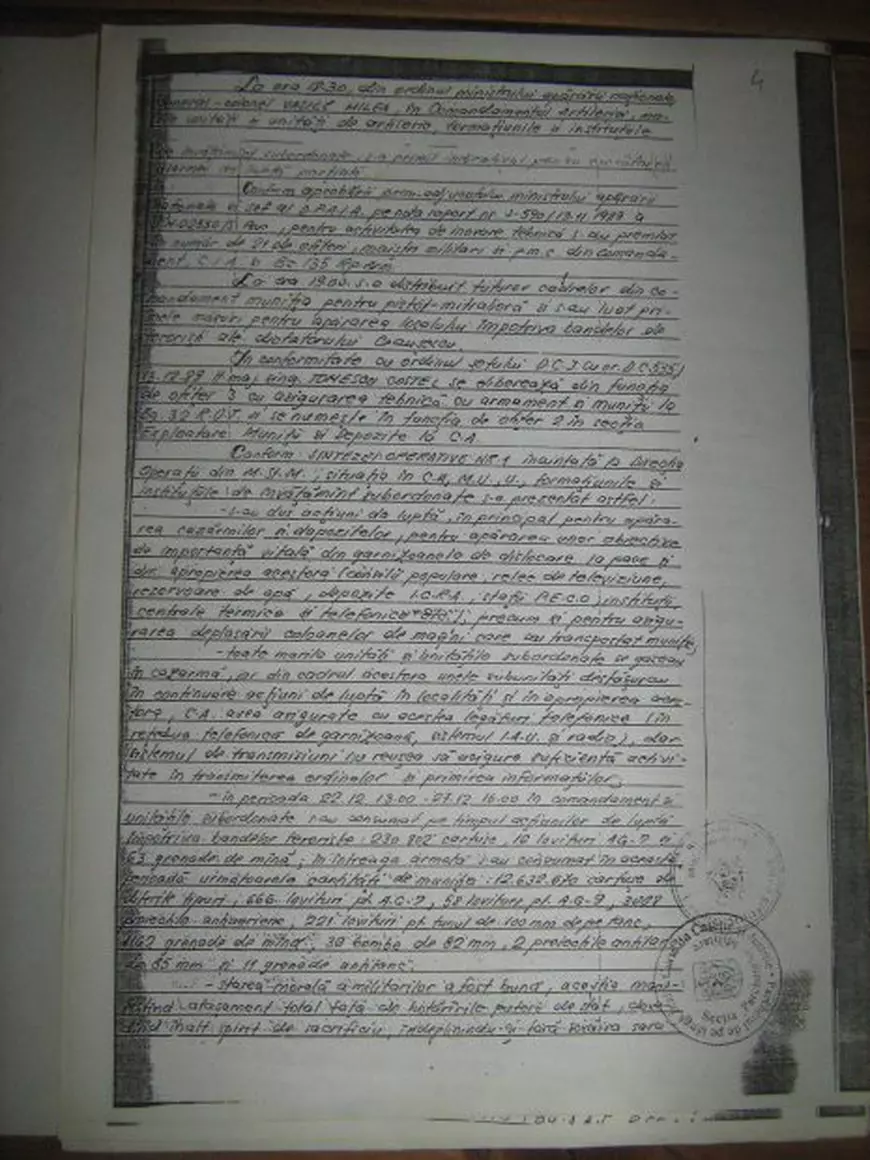 4
La ora 18.30, din ordinul ministrului apărării naționale
General-colonel VASILE MILEA, în Comandamentul Artileriei, ma-
rile unități și unități de artilerie, formațiunile și institutele
de învățămînt subordonate, s-a primit indicativul pentru
alarmei de luptă parțială.
Conform aprobării prim-adjunctului ministrului apărării
Naționale și șef al pe nota raport nr. 1989 a
pentru activitatea de inovare tehnică s-au premiat
un număr de 21 de ofițeri, maiștri militari și p.m.c. din comanda-
ment, C.I.A. și Bz. 135 Rp. Arm.
La ora 19.00 s-a distribuit tuturor cadrelor din co-
mandament muniția pentru pistol-mitralieră și s-au luat pri-
mele măsuri pentru apărarea localului împotriva bandelor de
teroriști ale dictatorului Ceaușescu.
În conformitate cu ordinul șefului D.C.Î. cu nr. D.C. 535/
12.89 lt. maj. ing. IONESCU COSTEL se eliberează din funcția
de ofițer 3 cu asigurarea tehnică cu armament și muniții la
și se numește în funcția de ofițer 2 în secția
Exploatare, Muniții și Depozite la C.A.
Conform SINTEZEI OPERATIVE NR. 1 înaintată la Direcția
Operații din M.St.M., situația în C.A., M.U., U., formațiunile și
institutele de învățămînt subordonate s-a prezentat astfel:
- s-au dus acțiuni de luptă, în principal pentru apăra-
rea cazărmilor și depozitelor, pentru apărarea unor obiective
de importanță vitală din garnizoanele de dislocare la pace și
din apropierea acestora (consilii populare, relee de televiziune,
rezervoare de apă, depozite I.C.R.A., stații P.E.C.O., instituții,
centrale termice și telefonice etc.), precum și pentru asigu-
rarea deplasării coloanelor de mașini care au transportat muniție;
- toate marile unități și unitățile subordonate se găseau
în cazarmă, iar din cadrul acestora unele subunități desfășurau
în continuare acțiuni de luptă în localități și în apropierea aces-
tora, C.A. avea asigurate cu acestea legături telefonice (în
rețeaua telefonică de garnizoană, sistemul I.A.U. și radio), dar
sistemul de transmisiuni nu reușea să asigure suficientă activi-
tate în transmiterea ordinelor și primirea informațiilor;
- în perioada 22.12. 13.00 - 27.12. 16.00 în comandament și
unitățile subordonate s-au consumat pe timpul acțiunilor de luptă
împotriva bandelor teroriste: 230.802 cartușe, 10 lovituri AG-7 și
63 grenade de mînă; în întreaga armată s-au consumat în această
perioadă următoarele cantități de muniție: 12.632.670 cartușe de
diferite tipuri, 666 lovituri pt. A.G.-7, 58 lovituri pt. A.G.-9, 3028
proiectile antiaeriene, 221 lovituri pt. tunul de 100 mm de pe tanc,
1162 grenade de mînă, 30 bombe de 82 mm, 2 proiectile antitanc
de 85 mm și 11 grenade antitanc;
- starea morală a militarilor a fost bună, aceștia mani-
festînd atașament total față de hotărîrile puterii de stat, dove-
dind înalt spirit de sacrificiu, îndeplinindu-și fără șovăire